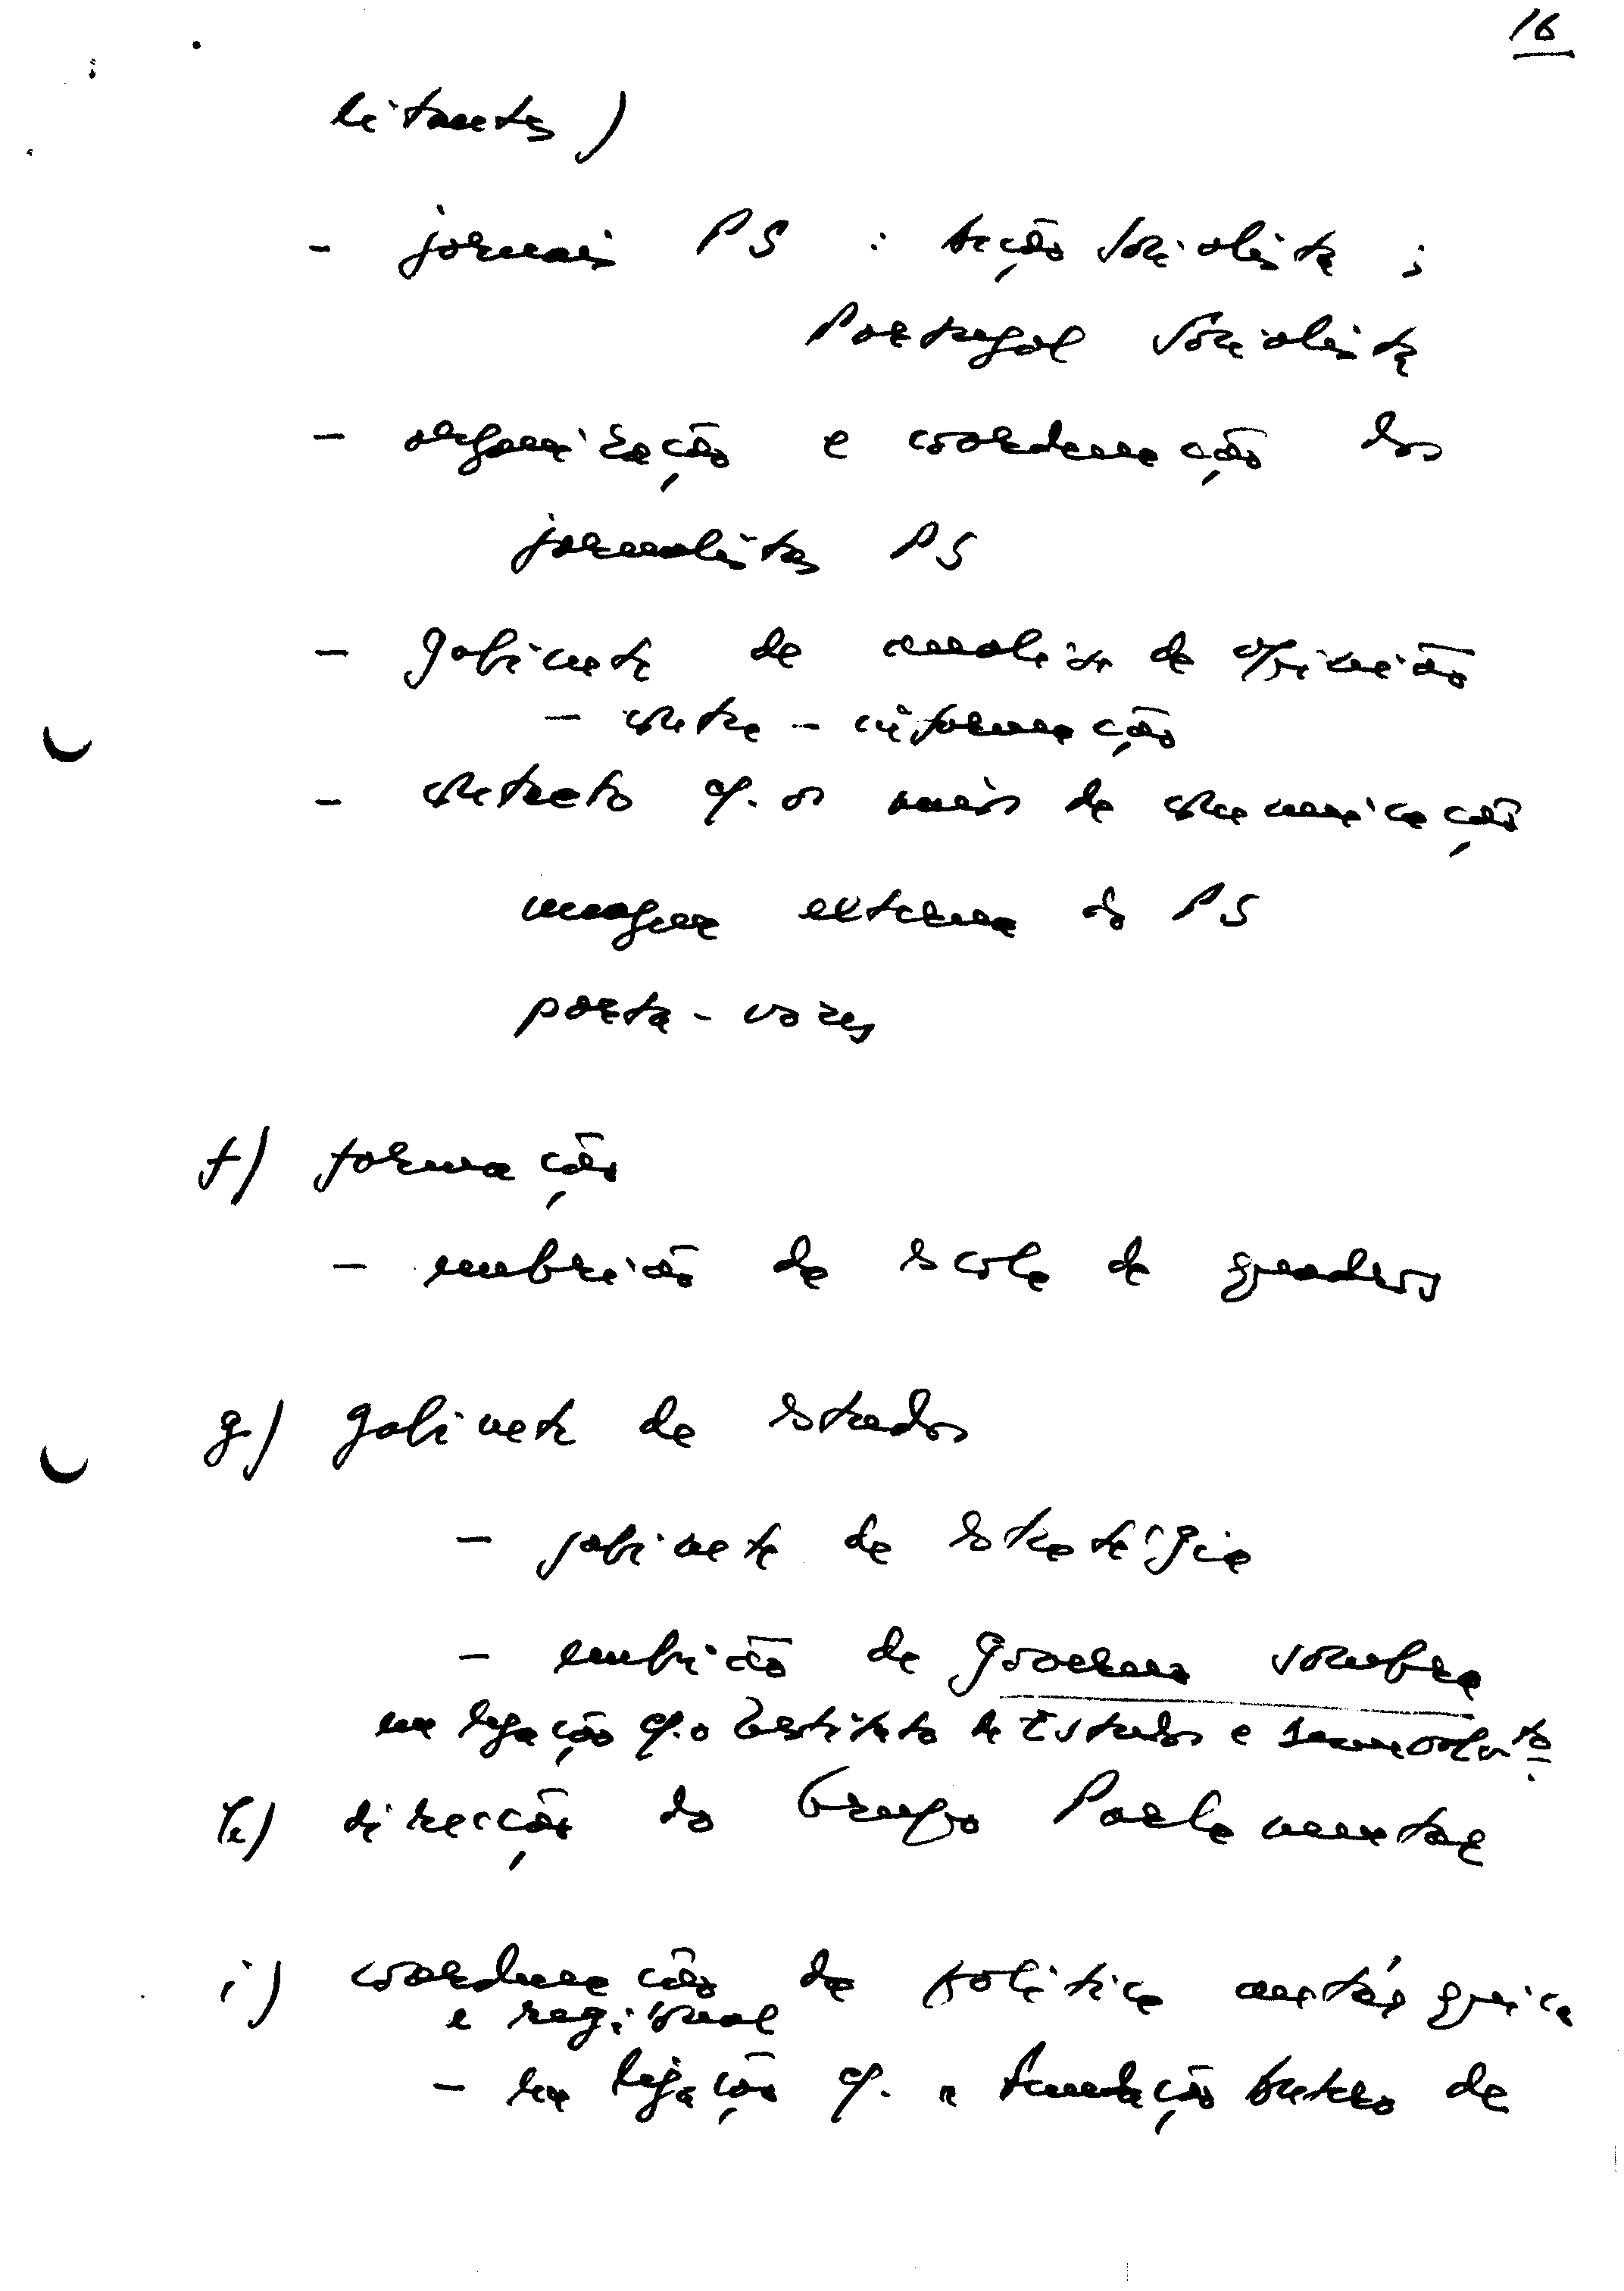 16
litantes)
- jornais PS : Acção Socialista ;
Portugal Socialista
- organização e coordenação dos
jornalistas PS
- gabinete de análise de opinião
- contra-informação
- contacto c/. os meios de comunicação
imagem externa do PS
porta-vozes
f) formação
- embrião de escola de quadros
g) gabinete de estudos
- gabinete de estratégia
- embrião de governo sombra
em ligação c/. o Instituto de Estudos e
h) direcção do Grupo Parlamentar
i) coordenação da política autárquica
e regional
- em ligação c/. a Fundação Antero de